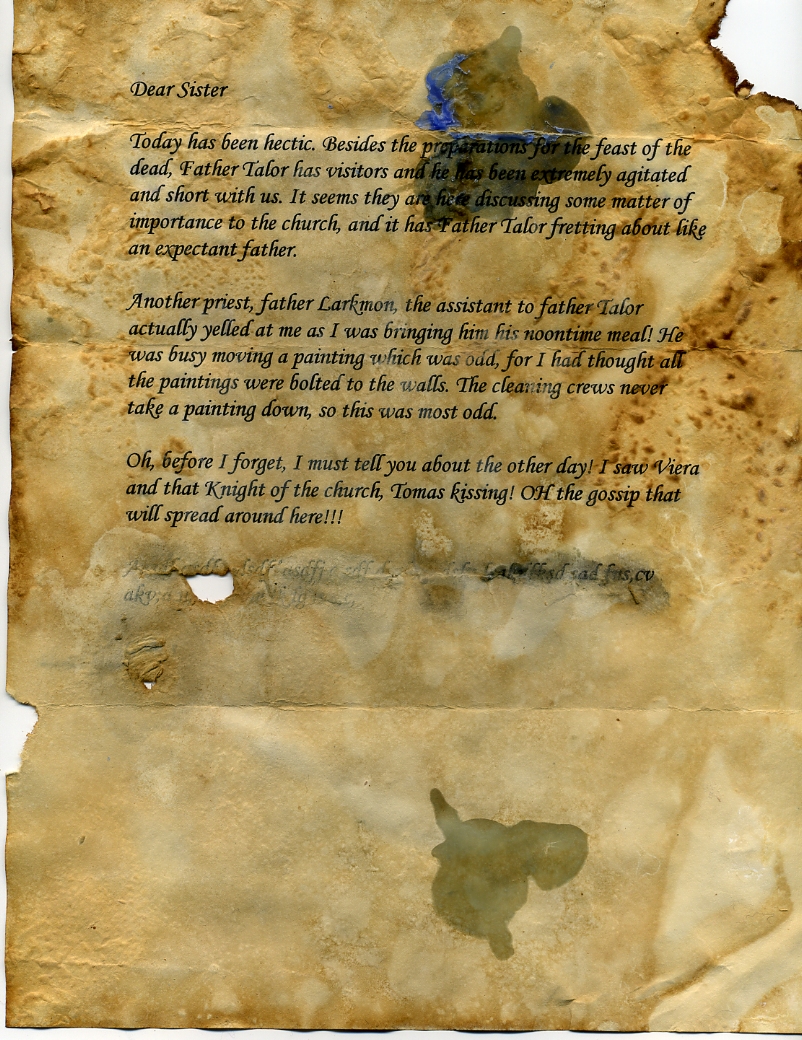 Dear Sister
Today has been hectic. Besides the preparations for the feast of the
dead, Father Talor has visitors and he has been extremely agitated
and short with us. It seems they are here discussing some matter of
importance to the church, and it has Father Talor fretting about like
an expectant father.
Another priest, father Larkmon, the assistant to father Talor
actually yelled at me as I was bringing him his noontime meal! He
was busy moving a painting which was odd, for I had thought all
the paintings were bolted to the walls. The cleaning crews never
take a painting down, so this was most odd.
Oh, before I forget, I must tell you about the other day! I saw Viera
and that Knight of the church, Tomas kissing! OH the gossip that
will spread around here!!!
sad fus,cv